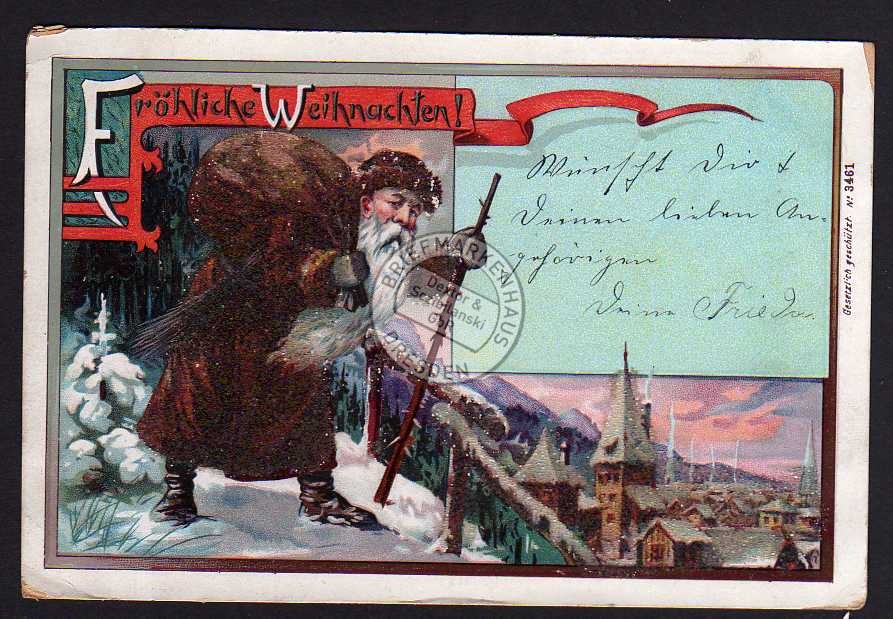 Fröhliche Weihnachten!
Wünscht Dir &
Deinen lieben An-
gehörigen
Deine Frieda.
Gesetzlich geschützt. No 3461
BRIEFMARKENHAUS
Dexler &
Sczibilanski
GbR
DRESDEN